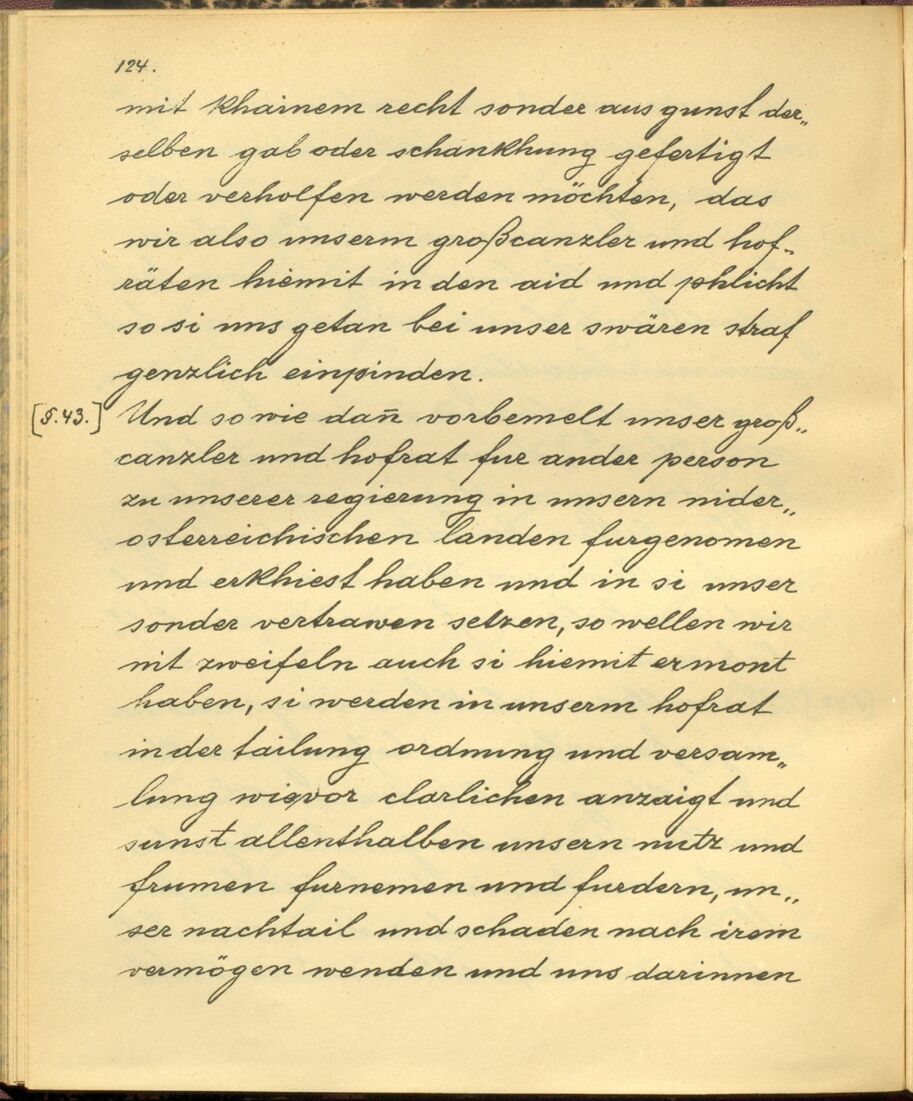 124.
mit khainem recht sonder aus gunst der„
selben gab oder schankhung gefertigt
oder verholfen werden möchten, das
wir also unserm großcanzler und hof„
räten hiemit in den aid und phlicht
so si uns getan bei unser swären straf
genzlich einpinden.
[§.43.] Und so wie dan̄ vorbemelt unser groß„
canzler und hofrat fur ander person
zu unserer regierung in unsern nider„
osterreichischen landen furgenomen
und erkhiest haben und in si unser
sonder vertrawen setzen, so wellen wir
nit zweifeln auch si hiemit ermont
haben, si werden in unserm hofrat
in der tailung ordnung und versam„
lung wievor clarlichen anzaigt und
sunst allenthalben unsern nutz und
frumen furnemen und furdern, un„
ser nachtail und schaden nach irem
vermögen wenden und uns darinnen